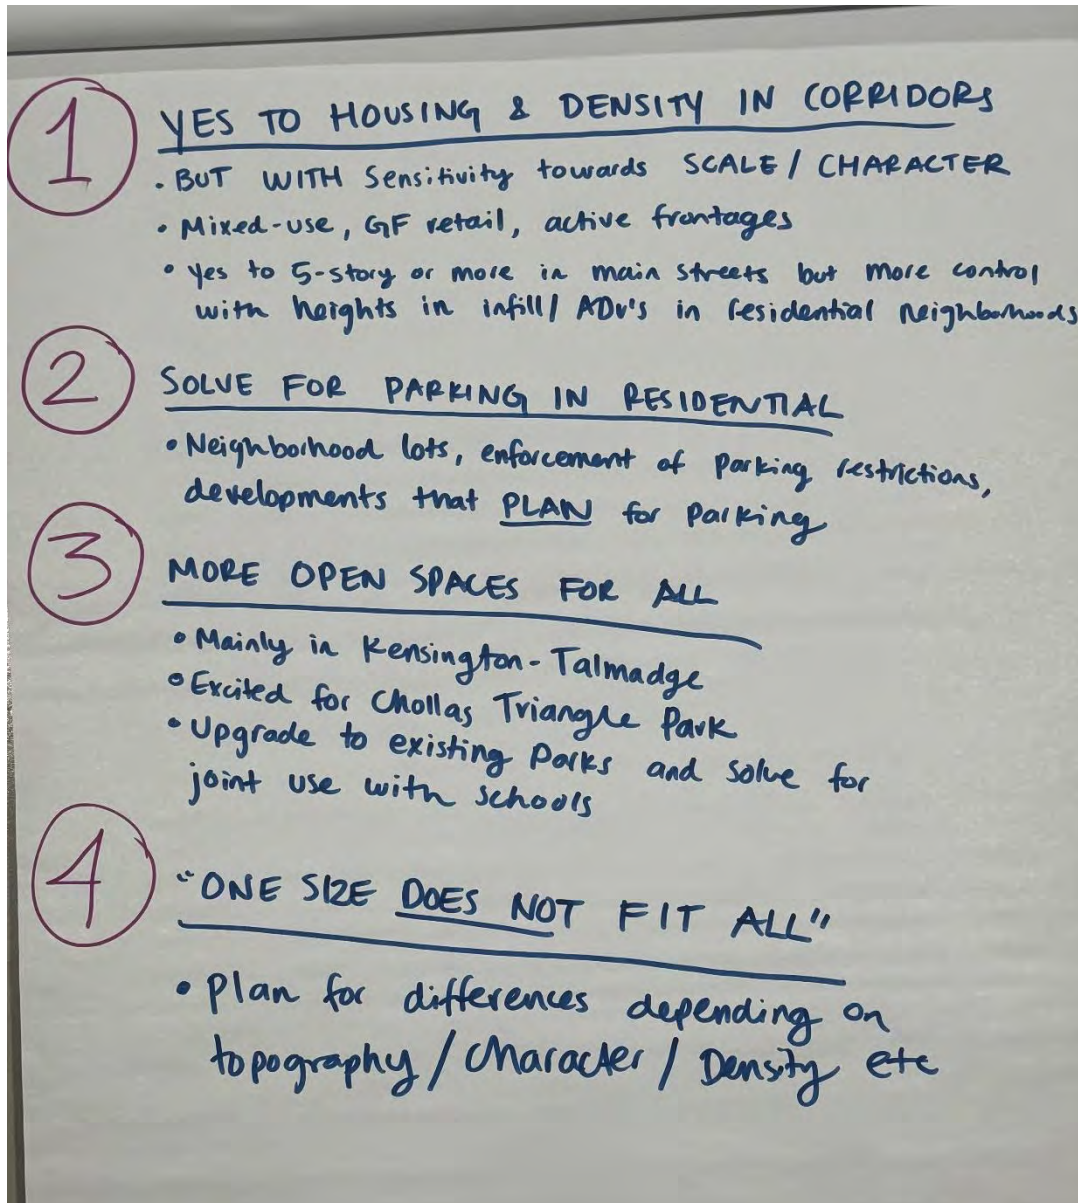 1 YES TO HOUSING & DENSITY IN CORRIDORS
• BUT WITH Sensitivity towards SCALE / CHARACTER
• Mixed-use, GF retail, active frontages
• Yes to 5-story or more in main streets but more control
with heights in infill/ ADU's in residential neighborhoods
2 SOLVE FOR PARKING IN RESIDENTIAL
• Neighborhood lots, enforcement of parking restrictions,
developments that PLAN for parking
3 MORE OPEN SPACES FOR ALL
• Mainly in Kensington-Talmadge
• Excited for Chollas Triangle Park
• Upgrade to existing Parks and solve for
joint use with schools
4 "ONE SIZE DOES NOT FIT ALL"
• Plan for differences depending on
topography / Character / Density etc